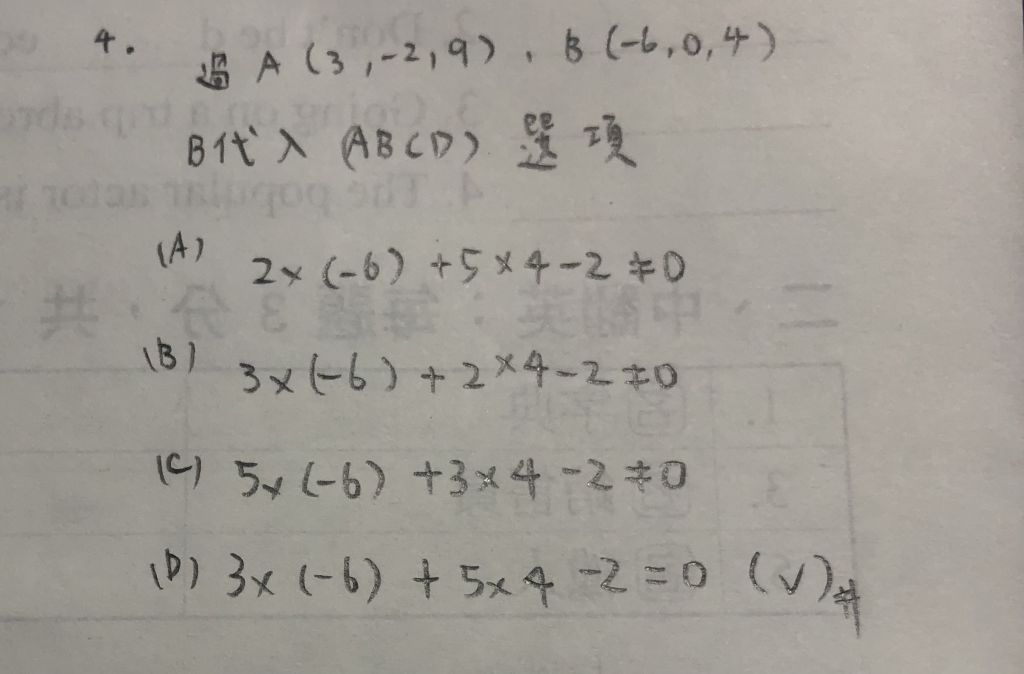 4.
過 A (3,-2,9)、B (-6,0,4)
B代入 (ABCD) 選項
(A) 2×(-6)+5×4-2≠0
(B) 3×(-6)+2×4-2≠0
(C) 5×(-6)+3×4-2≠0
(D) 3×(-6)+5×4-2=0 (V)#